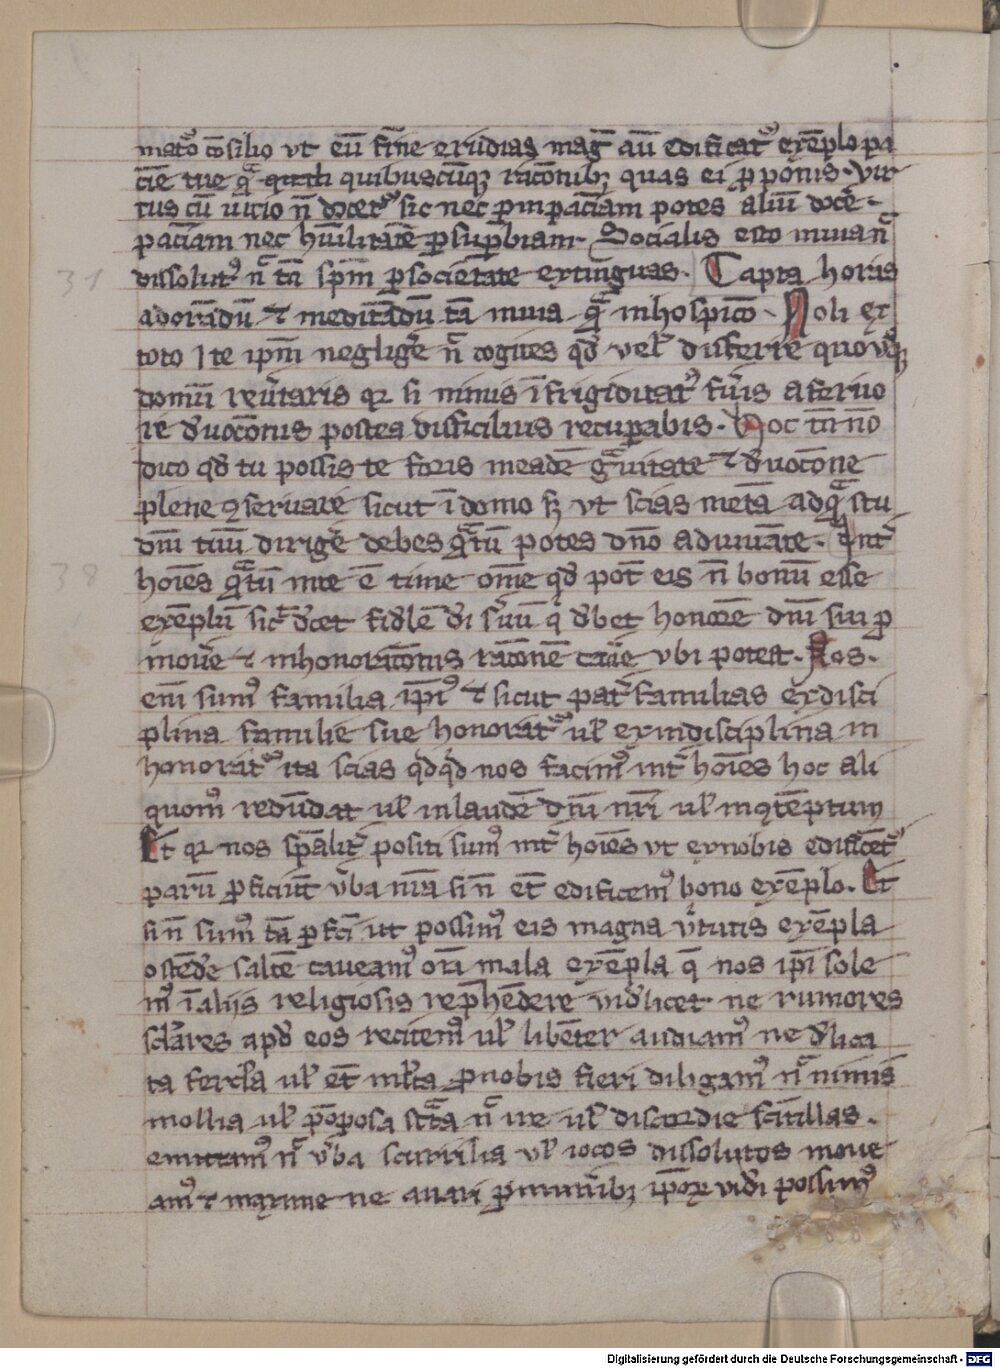 mat̾o co̅silio vt eu̅ fi̅ne erudias mag̅ au̅ edificat᷑ exe̅plo pa
cie̅ tue qᷓ quibuscu̅qꝫ raco̅nibꝫ quas ei ꝓponis. vir
tus cu̅ uicio n̅ docet᷑ sic nec ꝑ inpacia̅m potes aliu̅ doce̅.
pacia̅m nec hu̅ilitate̅ ꝑ suꝑbiam. Socialis esto in uia nᷓ
dissolut᷒ nᷓ ta̅ spm̅ ꝑ societate̅ extinguas. Capta horis
adora̅du̅ ⁊ medita̅du̅ ta̅ in uia qᷓ in hospico̅. Noli ex
toto te ipm̅ neglige̅ nᷓ cogites qd̅ vel᷑ differre quousqꝫ
domu̅ reu̅taris qꝛ si minus i̅frigidat᷑ fu̅is a feruo
re d̅uoco̅nis postea difficilius recuꝑabis. Hoc tn̅ no̅
dico qd̅ tu possis te foris in eade̅ gᷓuitate ⁊ d̅uoco̅ne
plene ꝯseruare sicut i̅ domo sꝫ vt scias meta̅ ad qᷓ stu
diu̅ tuu̅ dirige̅ debes qᷓtu̅ potes dn̅o adiuua̅te. Int̅
hoi̅es qᷓtu̅ in te e̅ time om̅e qd̅ pot̅ eis n̅ bonu̅ esse
exe̅plu̅ sic̅ d̅cet fidle̅ di̅ s̅uu̅ q̅ d̅bet honore̅ dn̅i sui ꝓ
moue̅ ⁊ inhonoraco̅nis raco̅ne̅ caue̅ vbi potest. Nos.
eni̅ sum᷒ familia ipi̅᷒ ⁊ sicut pat̅familias ex disci
plina familie sue honorat᷑ ul᷑ ex indisciplina in
honorat᷑ ita scias qd̅qd̅ nos facim᷒ int̅ hoi̅es hoc ali
quom᷒ redu̅dat ul᷑ in laude̅ dn̅i nr̅i ul᷑ in ꝯte̅ptum
Et qꝛ nos spa̅lit̅ positi sum᷒ int̅ hoi̅es vt ex nobis edificent᷑
paru̅ ꝓficiu̅t v̅ba nr̅a si n̅ et̅ edificem᷒ bono exe̅plo. Et
si n̅ sum᷒ ta̅ ꝑfc̅i ut possim᷒ eis magna v̅tutis exe̅pla
oste̅de̅ salte̅ caueam᷒ oi̅a mala exe̅pla q̅ nos ipi̅ sole
m᷒ i̅ alijs religiosis rep̅he̅dere vid̅licet ne rumores
sclares apd̅ eos recitem᷒ ul᷑ libe̅ter audiam᷒ ne d̅lica
ta fercl̅a ul᷑ et̅ ml̅ta ꝓ nobis fieri diligam᷒ nᷓ nimis
mollia ul᷑ po̅posa st̅ta nᷓ ire ul᷑ discordie sci̅tillas.
emittam᷒ nᷓ v̅ba scurrilia vl᷑ iocos dissolutos moue
am᷒ ⁊ maxime ne auari ꝓ munerib̅ꝫ ipo̅ꝝ vid̅i possim᷒